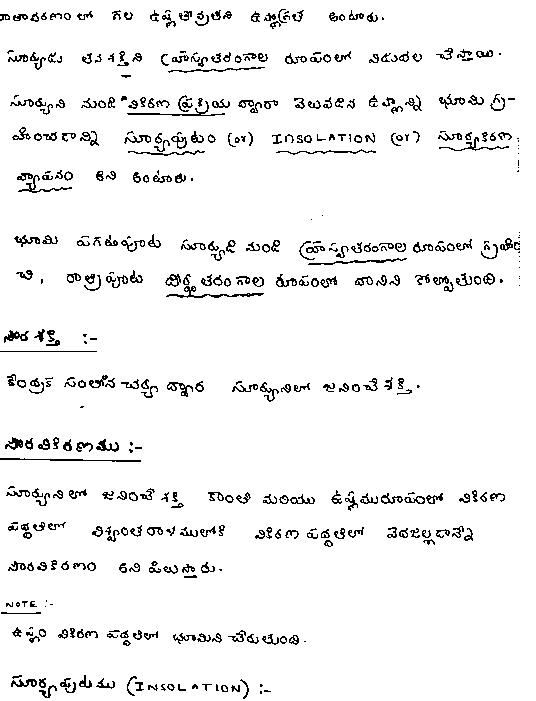 వాతావరణంలో గల ఉష్ణతీవ్రతని ఉష్ణోగ్రత అంటారు.
సూర్యుడు తన శక్తిని హ్రస్వతరంగాల రూపంలో విడుదల చేస్తాయి.
సూర్యుని నుండి వికిరణ ప్రక్రియ ద్వారా వెలువడిన ఉష్ణాన్ని భూమి గ్ర-
హించడాన్ని సూర్యపుటం (or) INSOLATION (or) సూర్యకిరణ
వ్యాపనం అని అంటారు.
భూమి పగటిపూట సూర్యుడి నుండి హ్రస్వతరంగాల రూపంలో గ్రహిం
చి, రాత్రిపూట దీర్ఘ తరంగాల రూపంలో దానిని కోల్పోతుంది.
సౌర శక్తి :-
కేంద్రక సంలీన చర్య ద్వార సూర్యునిలో జనించే శక్తి.
సౌరవికిరణము :-
సూర్యునిలో జనించే శక్తి కాంతి మరియు ఉష్ణమురూపంలో వికిరణ
పద్ధతిలో విశ్వాంతరాళములోకి వికిరణ పద్ధతిలో వెదజల్లడాన్నే
సౌరవికిరణం అని పిలుస్తారు.
NOTE :-
ఉష్ణం వికిరణ పద్ధతిలో భూమిని చేరుతుంది.
సూర్యపుటము (INSOLATION) :-